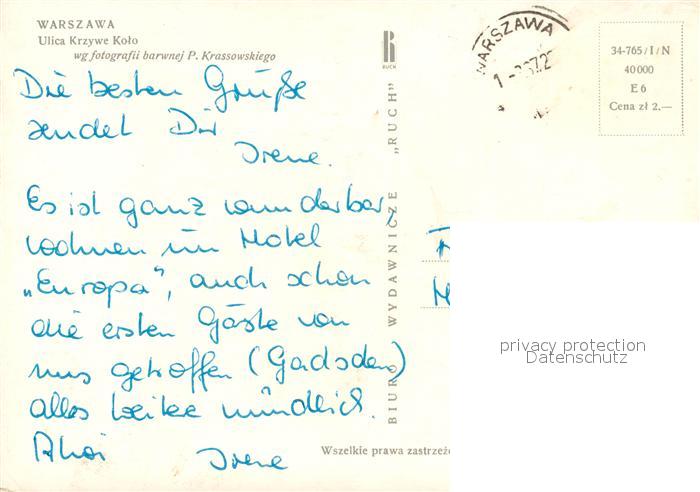 WARSZAWA
Ulica Krzywe Koło
wg fotografii barwnej P. Krassowskiego
Die besten Grüße
sendet Dir
Irene.
Es ist ganz wunderbar,
wohnen im Hotel
„Europa", auch schon
die ersten Gäste von
uns getroffen (Gadsden)
alles weitere mündlich.
Ahoi
Irene
RUCH
BIURO WYDAWNICZE „RUCH"
WARSZAWA
34-765/I/N
40000
E 6
Cena zł 2.—
privacy protection
Datenschutz
Wszelkie prawa